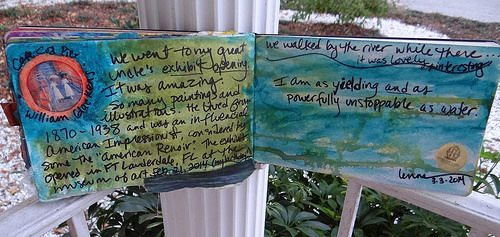 William Glackens
We went to my great
uncle's exhibit opening.
It was amazing.
So many paintings and
illustrations. He lived from
1870-1938 and was an influencial
American Impressionist, considered by
some the "american Renoir". The exhibit
opened in FT Lauderdale, FL at
museum of art Feb. 21, 2014
we walked by the river while there...
it was lovely
I am as yielding and as
powerfully unstoppable as water.
3.3.2014